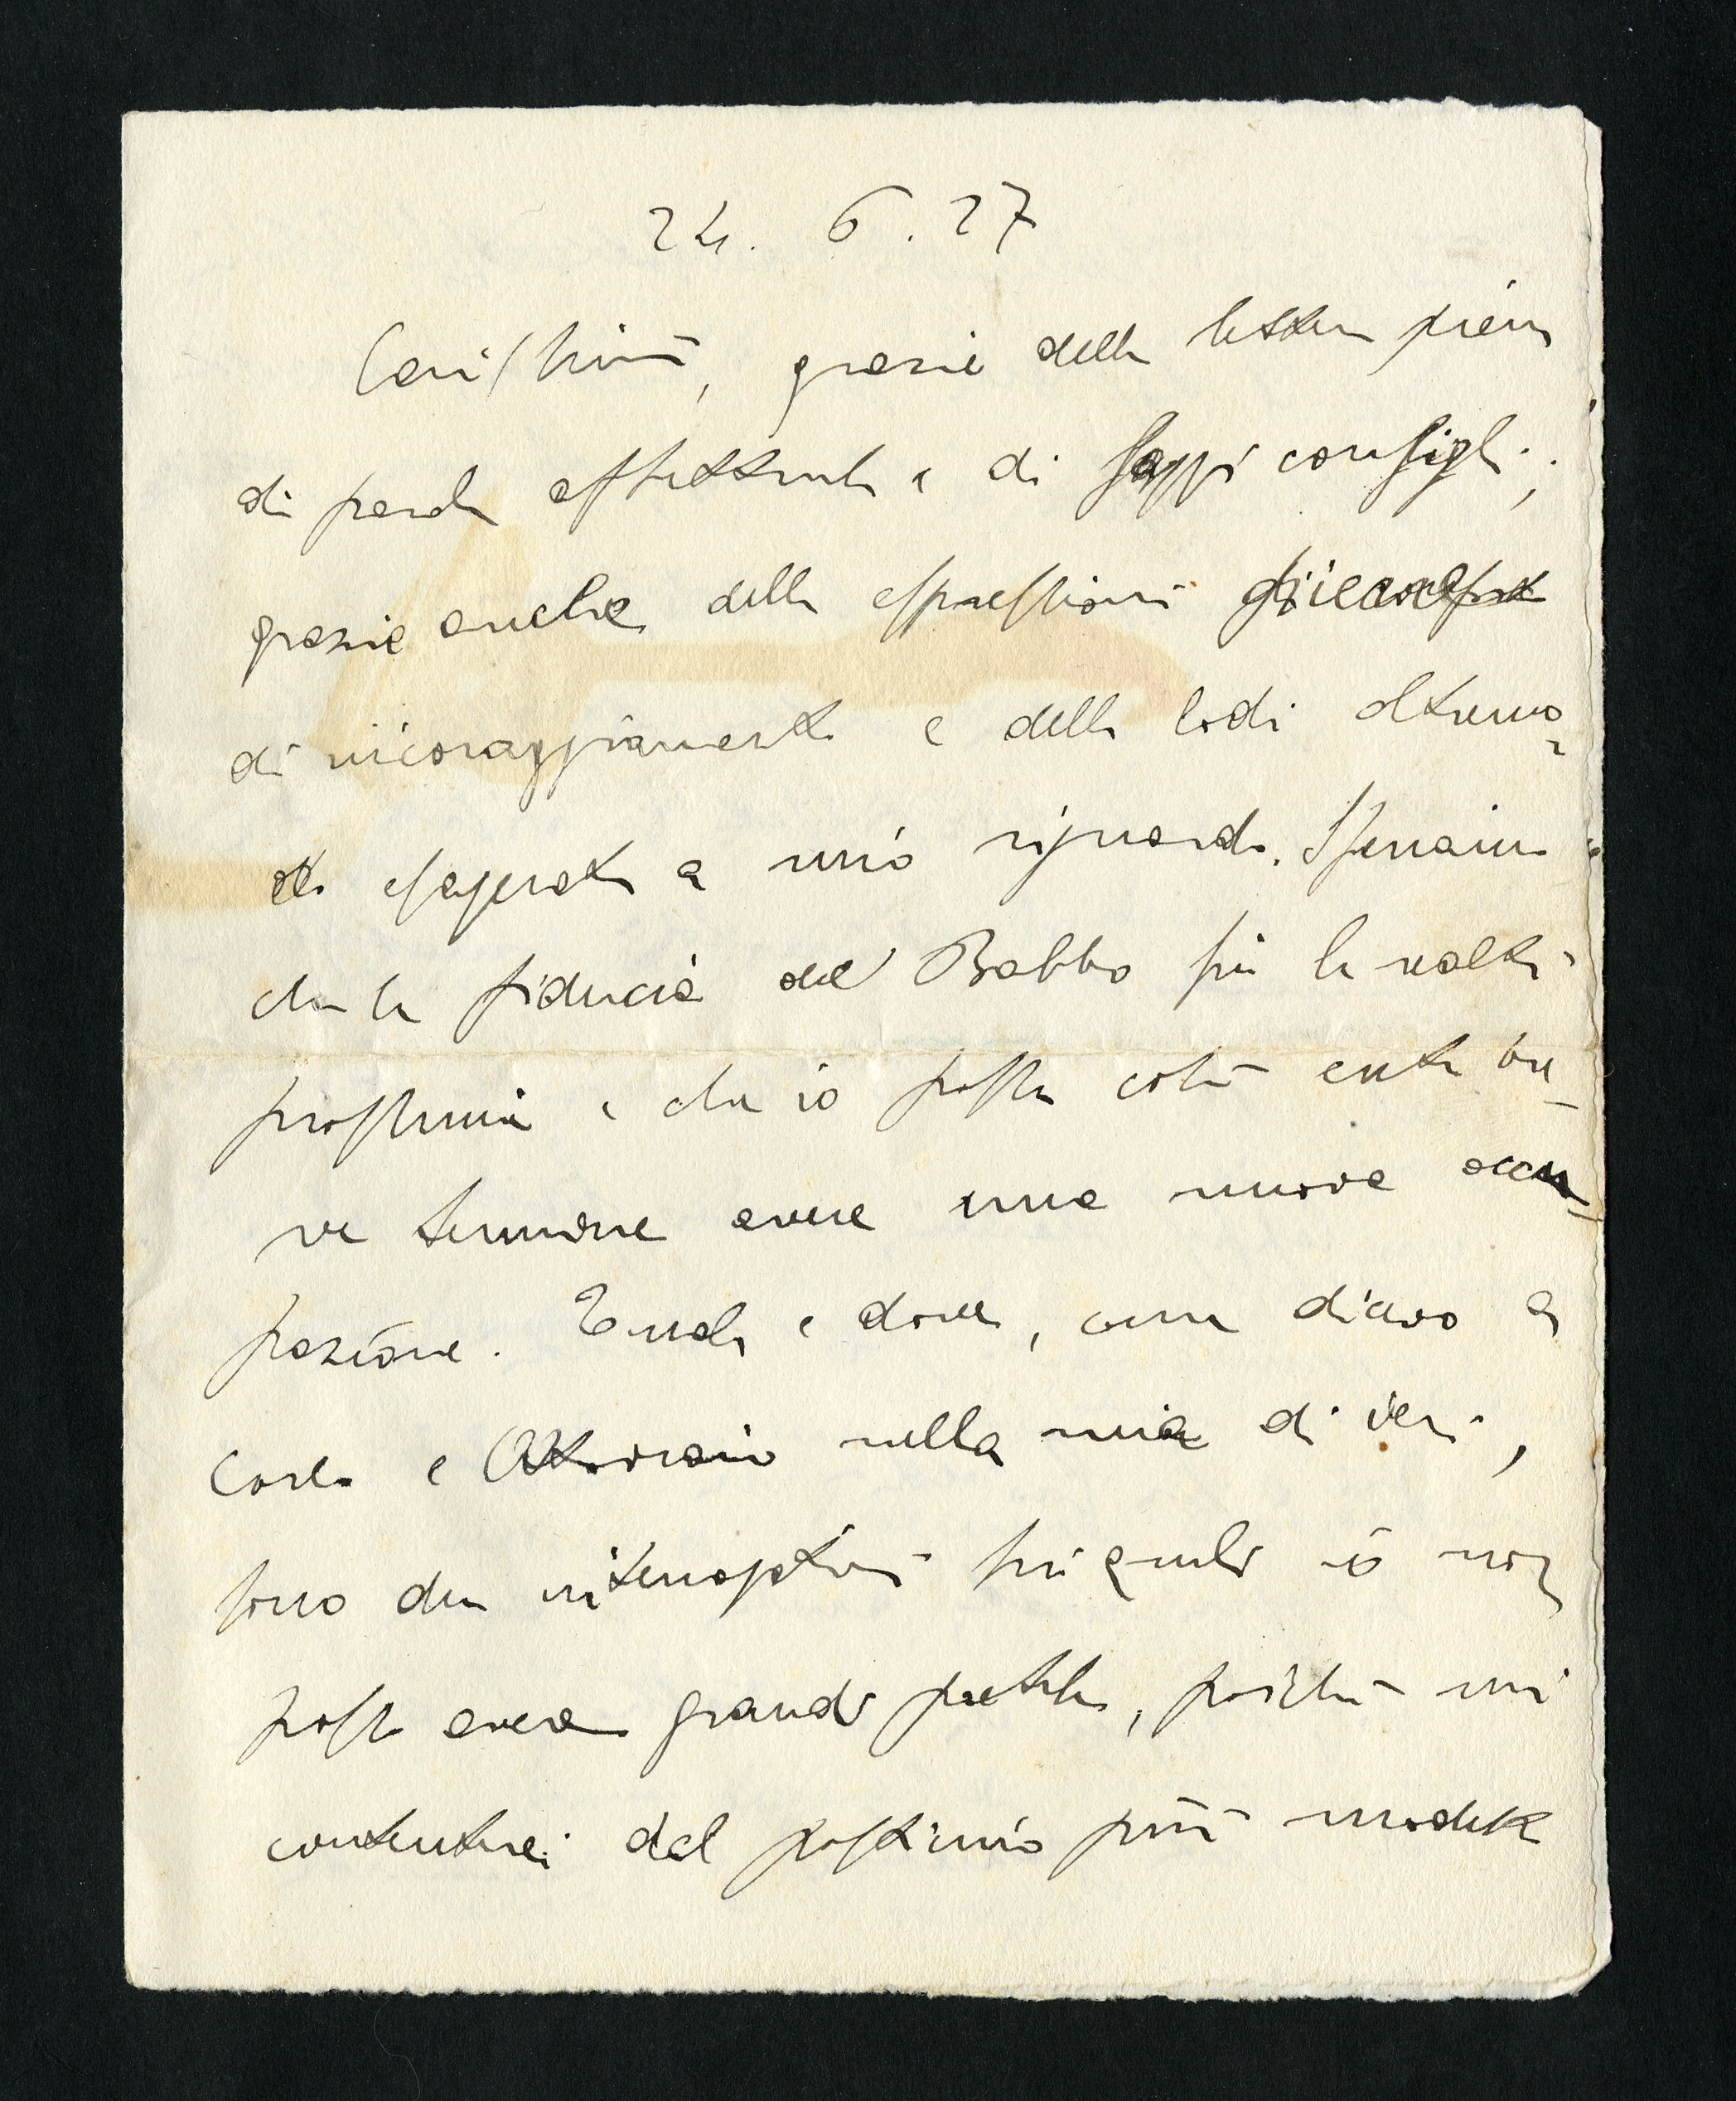 24. 6. 27
Carissimi, grazie della lettera piena
di parole affettuose e di saggi consigli;
grazie anche delle espressioni
di incoraggiamento e delle lodi oltremo-
do esagerate a mio riguardo. Speriamo
che la fiducia del Babbo sia la realtà
prossima e che io possa così entro bre-
ve termine avere una nuova occu-
pazione. Quale e dove, come dicevo a
Carlo e Attorain nella mia di ieri,
sono due interrogativi sui quali io non
posso avere grandi pretese, poiché mi
contenterei del postimo più modesto